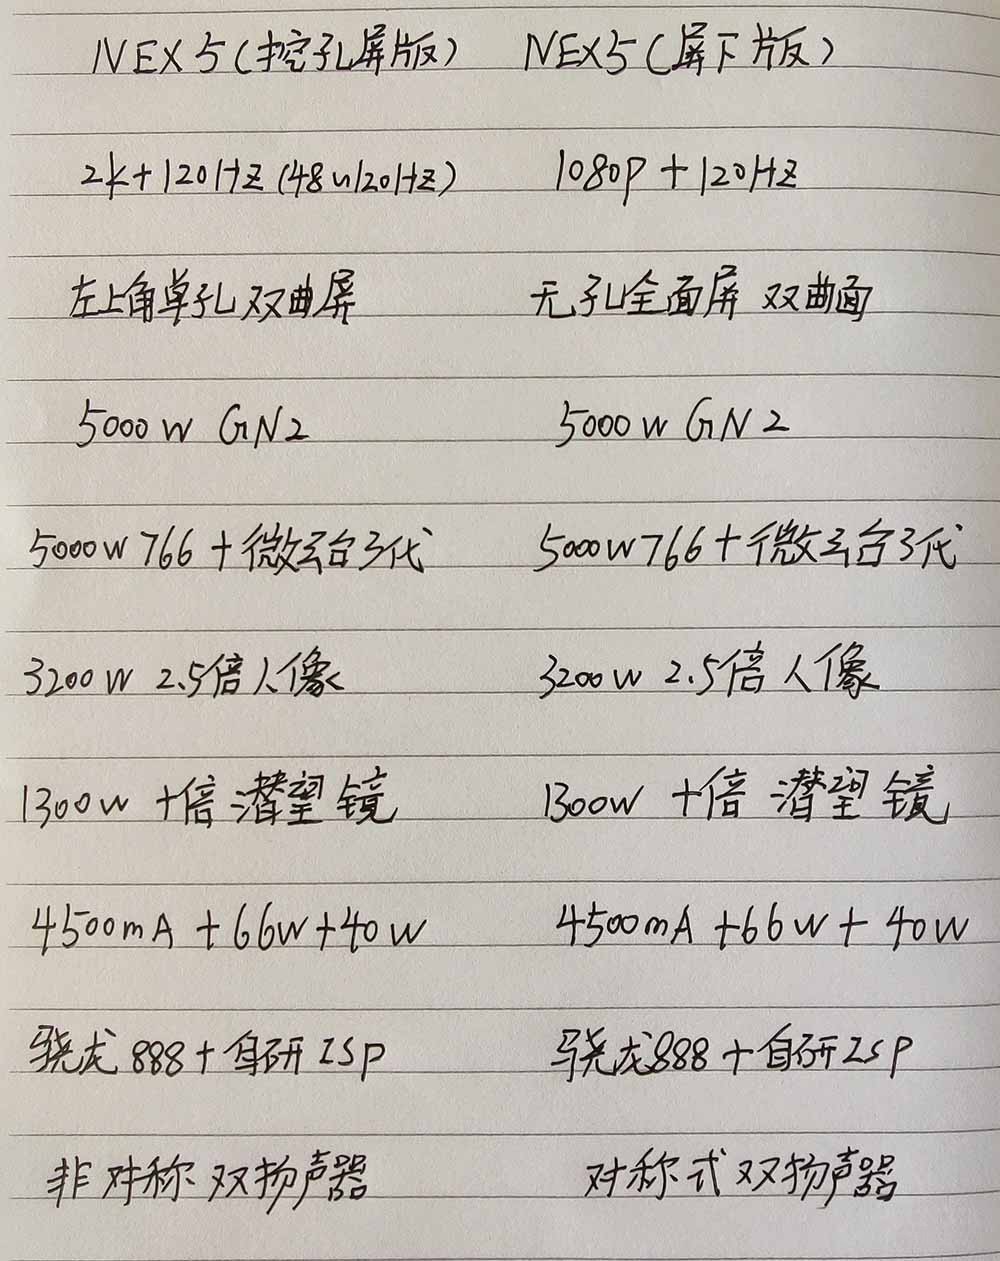 NEX5(挖孔屏版) NEX5(屏下版)
2k+120Hz(48~120Hz) 1080P+120Hz
左上角单孔双曲屏 无孔全面屏 双曲面
5000W GN2 5000W GN2
5000W 766+微云台3代 5000W766+微云台3代
3200W 2.5倍人像 3200W 2.5倍人像
1300W 十倍潜望镜 1300W 十倍 潜望镜
4500mA+66W+40W 4500mA+66W+40W
骁龙888+自研ISP 骁龙888+自研ISP
非对称双扬声器 对称式双扬声器